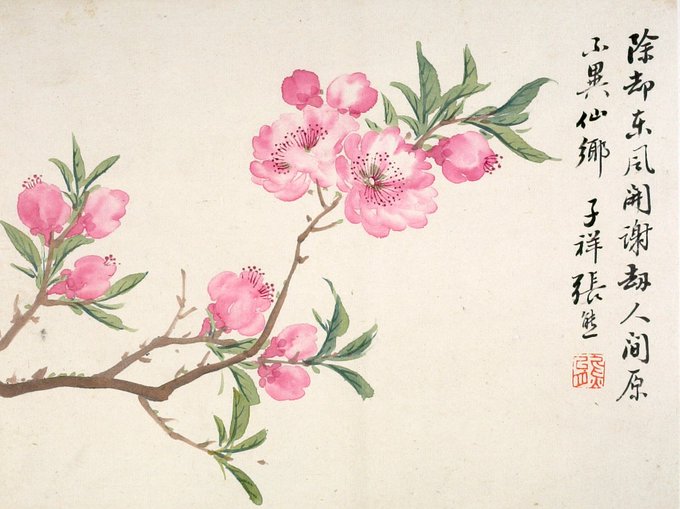 除却东风開谢劫人间原
不異仙鄉 子祥張熊